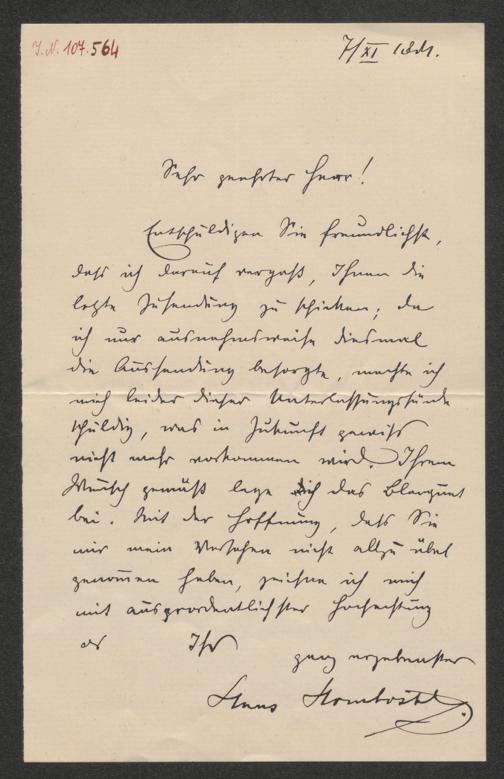 J.N. 107.564
7/XI
Sehr geehrter Herr!
Entschuldigen Sie freundlichst,
dass ich darauf vergaß, Ihnen die
letzte Zusendung zu schicken; da
ich nur ausnahmsweise diesmal
die Aussendung besorgte, machte ich
mich leider dieser Unterlassungssünde
schuldig, was in Zukunft gewiss
nicht mehr vorkommen wird. Ihrem
Wunsch gemäß lege ich das
bei. Mit der Hoffnung, dass Sie
mir mein Versehen nicht allzu übel
genommen haben, zeichne ich mich
mit ausserordentlichster Hochachtung
als Ihr
ganz ergebenster
Hans Hornbostel